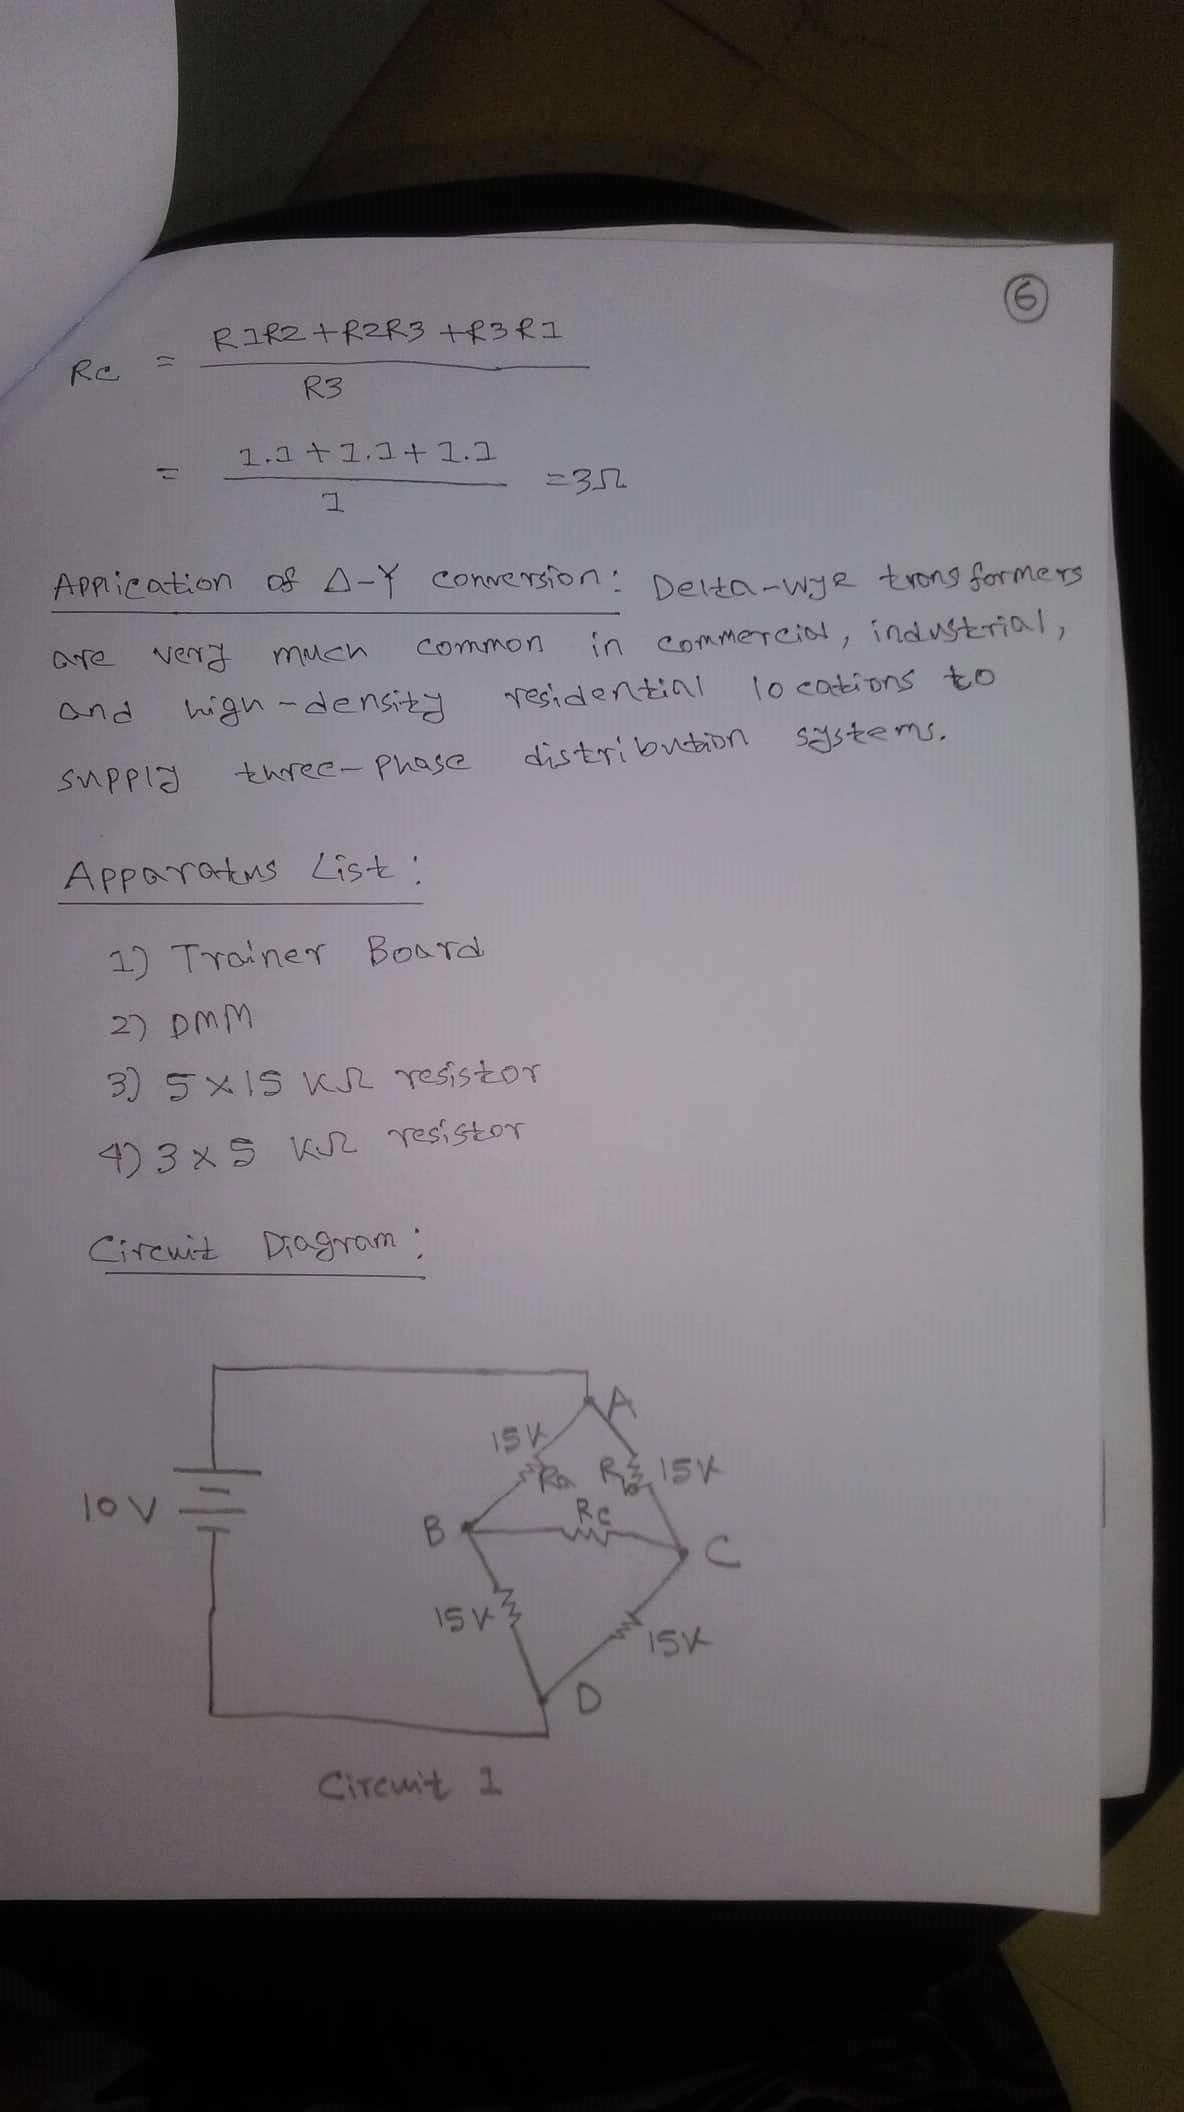 6
Rc = R1R2+R2R3+R3R1
R3
= 1.1+1.1+1.1 =3Ω
1
Application of Δ-Y conversion: Delta-wye transformers
are very much common in commercial, industrial,
and high-density residential locations to
supply three-phase distribution systems.
Apparatus List:
1) Trainer Board
2) DMM
3) 5×15 KΩ resistor
4) 3×5 KΩ resistor
Circuit Diagram:
A
15K Ra Rb 15K
10V
B Rc C
15K 15K
D
Circuit 1